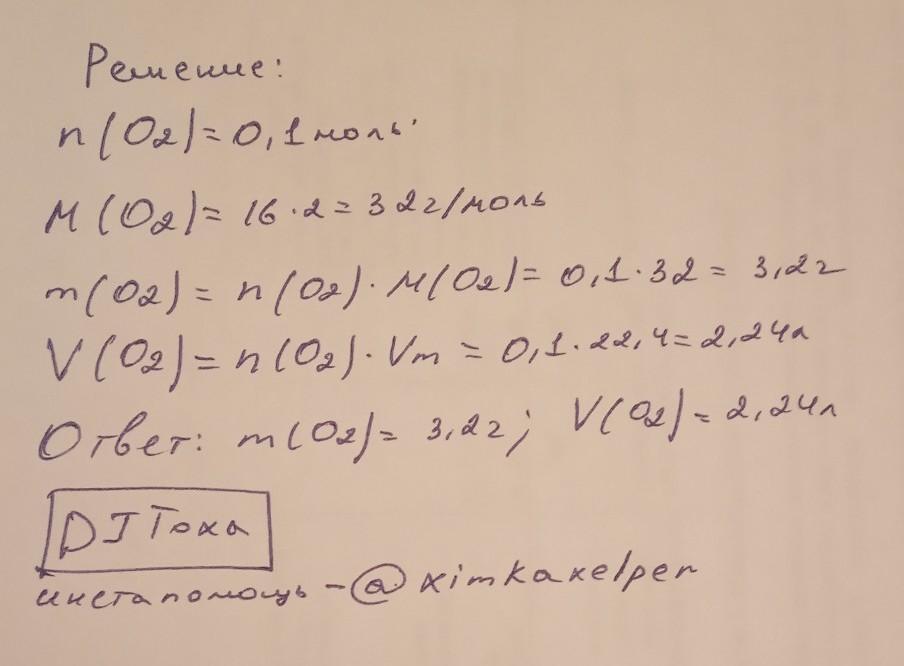 Решение:
n(O2)=0,1моль
M(O2)=16·2=32г/моль
m(O2)=n(O2)·M(O2)=0,1·32=3,2г
V(O2)=n(O2)·Vm=0,1·22,4=2,24л
Ответ: m(O2)=3,2г; V(O2)=2,24л
DJ Тоха
инстапомощь-@ximkaxelper